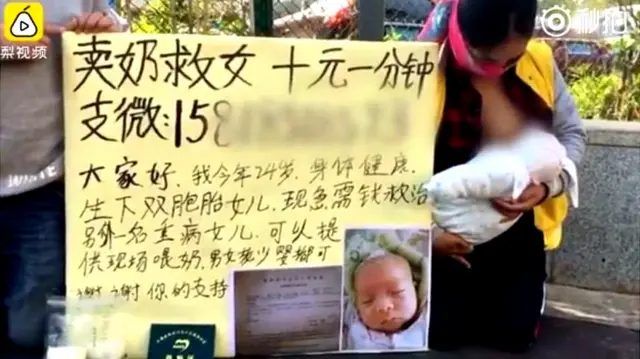 梨视频
秒拍
卖奶救女 十元一分钟
支微:15
大家好,我今年24岁,身体健康,
生下双胞胎女儿,现急需钱救治
另外一名重病女儿,可以提
供现场喂奶,男女老少婴都可
谢谢你的支持